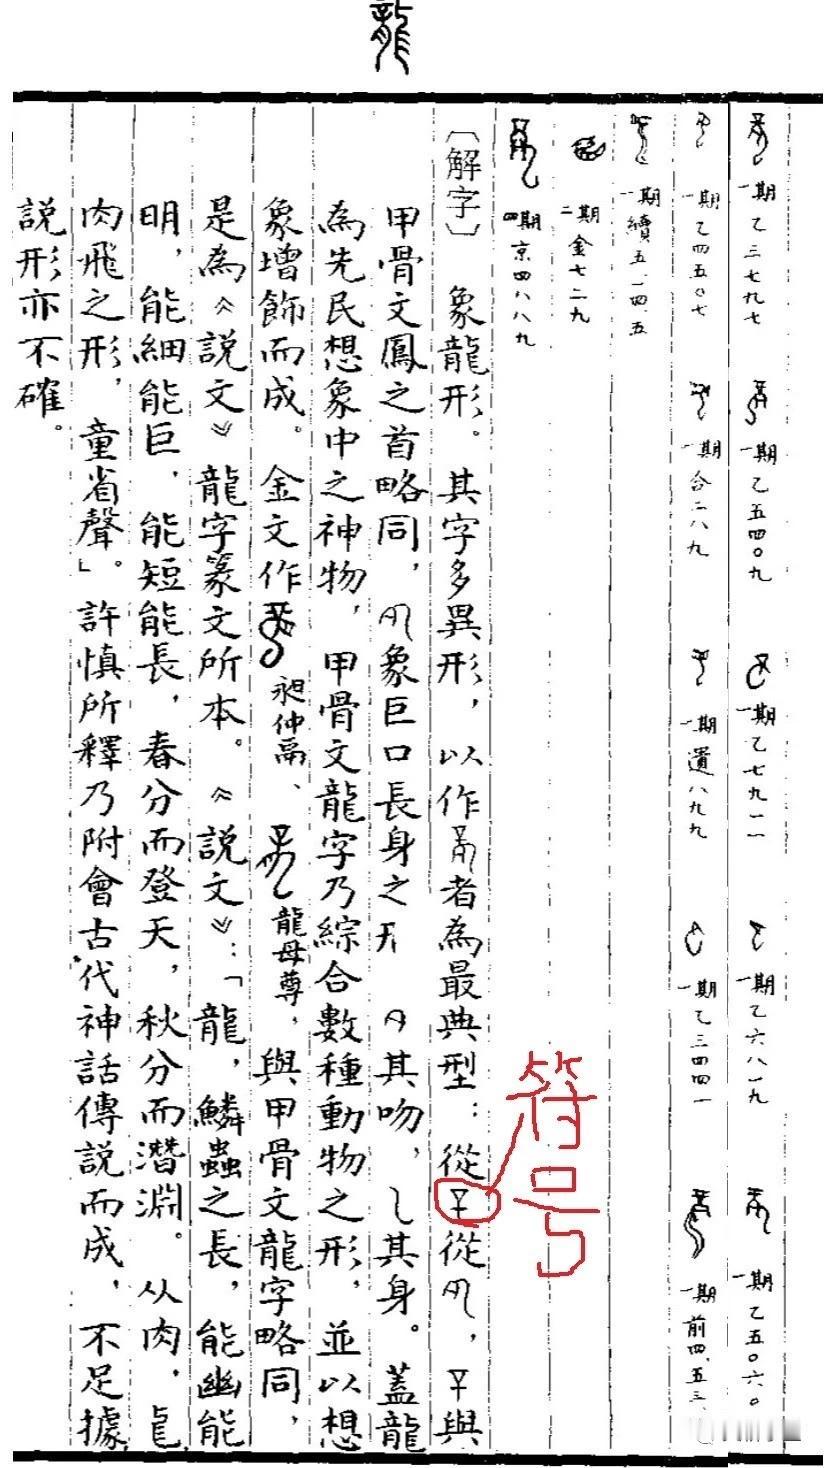 龍
一期 乙三七九七
一期 乙五四〇九
一期 乙七九一一
一期 乙六八一九
一期 乙五〇六〇
一期 乙四五〇七
一期 合二八九
一期 遺八九九
一期 乙三四四一
一期 前四.五三.
一期 續五.一四.五
二期 金七二九
四期 京四八八九
〔解字〕 象龍形。其字多異形，以作者為最典型：從從，與
甲骨文鳳之首略同，象巨口長身之其吻，其身。蓋龍
為先民想象中之神物，甲骨文龍字乃綜合數種動物之形，並以想
象增飾而成。金文作昶仲鬲、龍母尊，與甲骨文龍字略同，
是為《說文》龍字篆文所本。《說文》：「龍，鱗蟲之長，能幽能
明，能細能巨，能短能長，春分而登天，秋分而潛淵。从肉，皀
肉飛之形，童省聲」。許慎所釋乃附會古代神話傳說而成，不足據
說形亦不確。
符号